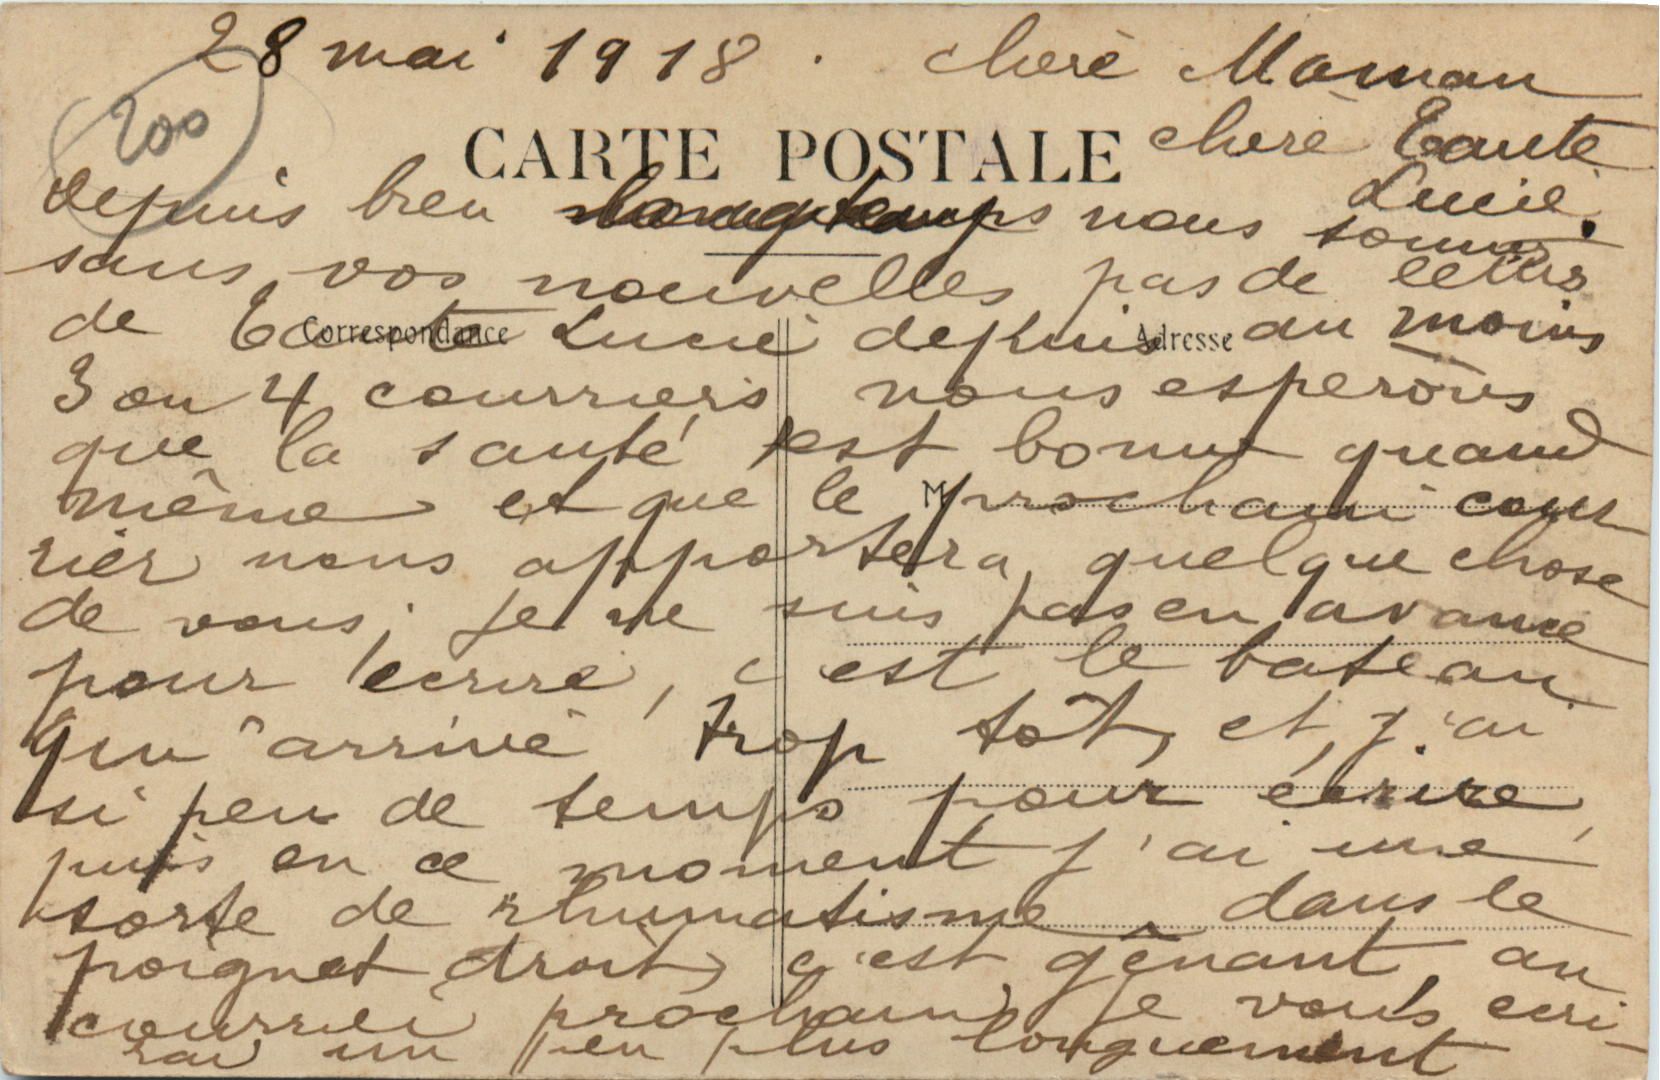 28 mai 1918. chère Maman
200
CARTE POSTALE
chère Tante
Lucie.
depuis bien longtemps nous sommes
sans vos nouvelles pas de lettres
de Tante Lucie depuis au moins
Correspondance
Adresse
3 ou 4 courriers nous esperons
que la santé est bonne quand
même et que le prochain cour
M
rier nous apportera quelque chose
de vous; je ne suis pas en avance
pour ecrire, c'est le bateau
qui arrive trop tôt, et j'ai
si peu de temps pour écrire,
puis en ce moment j'ai une
sorte de rhumatisme dans le
poignet droit, c'est gênant, au
courrier prochain, je vous ecri-
rai un peu plus longuement